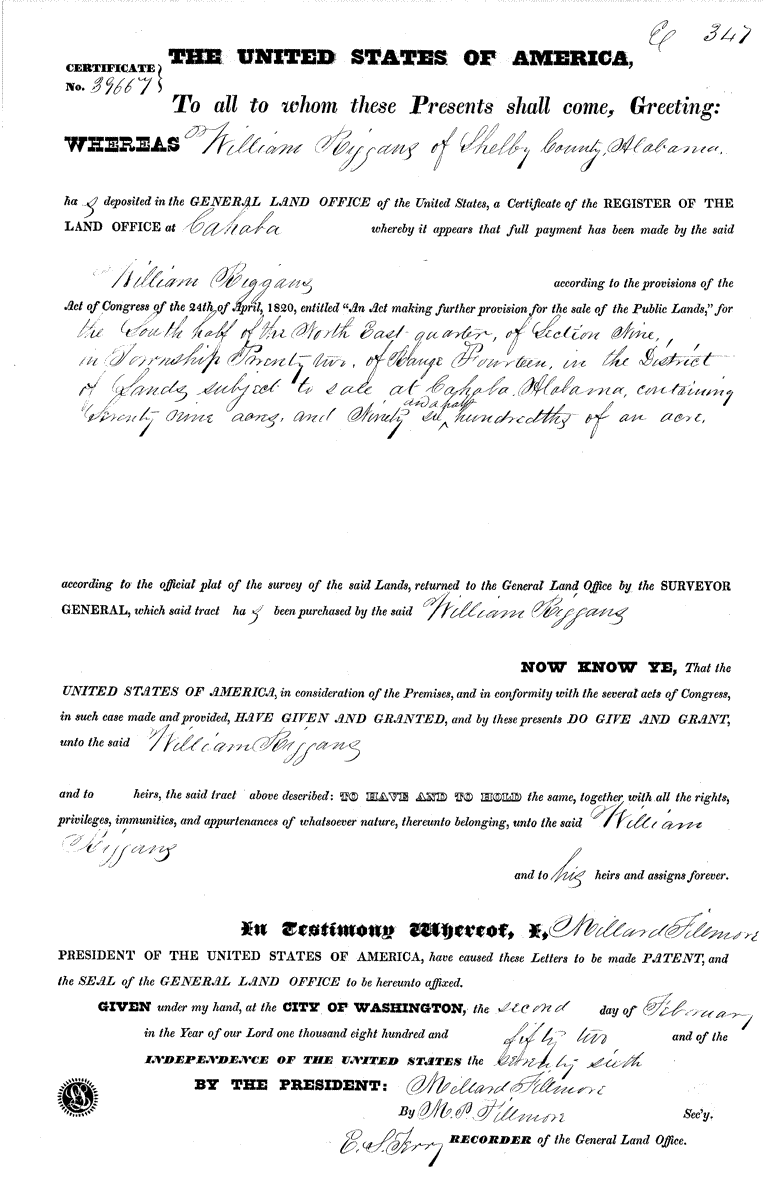 347
THE UNITED STATES OF AMERICA,
CERTIFICATE
No. 39667
To all to whom these Presents shall come, Greeting:
WHEREAS William Riggans of Shelby County, Alabama.
has deposited in the GENERAL LAND OFFICE of the United States, a Certificate of the REGISTER OF THE
LAND OFFICE at Cahaba whereby it appears that full payment has been made by the said
William Riggans according to the provisions of the
Act of Congress of the 24th of April, 1820, entitled “An Act making further provision for the sale of the Public Lands,” for
the South half of the North East quarter, of Section Nine,
in Township Twenty two, of Range Fourteen, in the District
of Lands subject to sale at Cahaba, Alabama, containing
Seventy nine acres, and Ninety six and a half hundredths of an acre.
according to the official plat of the survey of the said Lands, returned to the General Land Office by the SURVEYOR
GENERAL, which said tract has been purchased by the said William Riggans
NOW KNOW YE, That the
UNITED STATES OF AMERICA, in consideration of the Premises, and in conformity with the several acts of Congress,
in such case made and provided, HAVE GIVEN AND GRANTED, and by these presents DO GIVE AND GRANT,
unto the said William Riggans
and to heirs, the said tract above described: TO HAVE AND TO HOLD the same, together with all the rights,
privileges, immunities, and appurtenances of whatsoever nature, thereunto belonging, unto the said William
Riggans
and to his heirs and assigns forever.
In Testimony Whereof, I, Millard Fillmore
PRESIDENT OF THE UNITED STATES OF AMERICA, have caused these Letters to be made PATENT, and
the SEAL of the GENERAL LAND OFFICE to be hereunto affixed.
GIVEN under my hand, at the CITY OF WASHINGTON, the second day of February
in the Year of our Lord one thousand eight hundred and fifty two and of the
INDEPENDENCE OF THE UNITED STATES the seventy sixth
BY THE PRESIDENT: Millard Fillmore
By M. P. Fillmore Sec'y.
E. S. Terry RECORDER of the General Land Office.